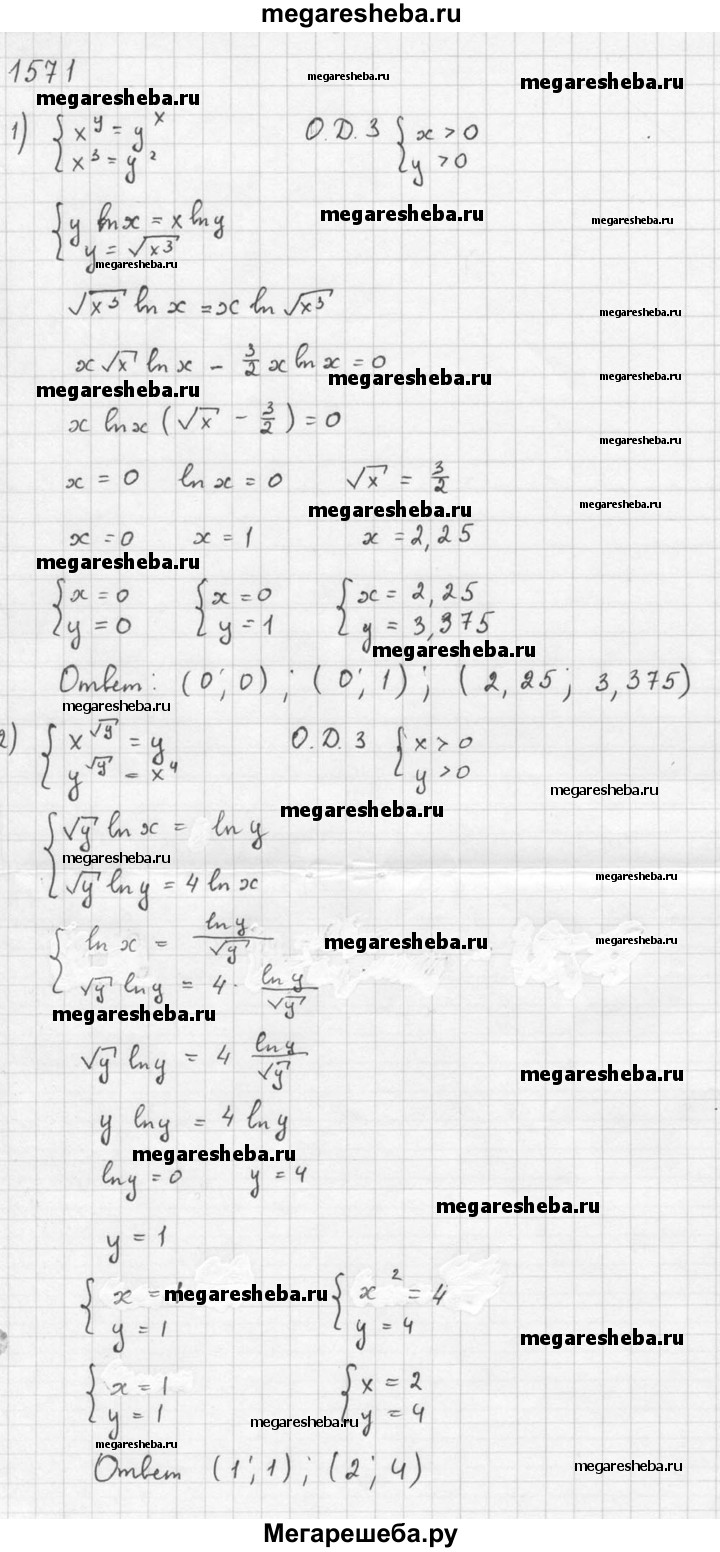 megaresheba.ru
1571
megaresheba.ru
megaresheba.ru
megaresheba.ru
1) { x^y = y^x О.Д.З { x > 0
{ x³ = y² { y > 0
megaresheba.ru
megaresheba.ru
{ y ln x = x ln y
{ y = √x³
megaresheba.ru
√x³ ln x = x ln √x³
megaresheba.ru
x√x ln x - 3/2 x ln x = 0
megaresheba.ru
megaresheba.ru
megaresheba.ru
x ln x (√x - 3/2) = 0
megaresheba.ru
x = 0 ln x = 0 √x = 3/2
megaresheba.ru
megaresheba.ru
x = 0 x = 1 x = 2,25
megaresheba.ru
{ x = 0 { x = 0 { x = 2,25
{ y = 0 { y = 1 { y = 3,375
megaresheba.ru
Ответ: (0; 0) ; (0; 1) ; (2,25; 3,375)
megaresheba.ru
2) { x^√y = y О.Д.З { x > 0
{ y^√y = x⁴ { y > 0
megaresheba.ru
megaresheba.ru
{ √y ln x = ln y
megaresheba.ru
{ √y ln y = 4 ln x
megaresheba.ru
{ ln x = ln y / √y
megaresheba.ru
megaresheba.ru
{ √y ln y = 4 · ln y / √y
megaresheba.ru
√y ln y = 4 ln y / √y
megaresheba.ru
y ln y = 4 ln y
megaresheba.ru
ln y = 0 y = 4
megaresheba.ru
y = 1
{ x = 1 { x² = 4
megaresheba.ru
{ y = 1 { y = 4
megaresheba.ru
{ x = 1 { x = 2
{ y = 1 { y = 4
megaresheba.ru
megaresheba.ru
Ответ (1; 1) ; (2; 4)
megaresheba.ru
Мегарешеба.ру